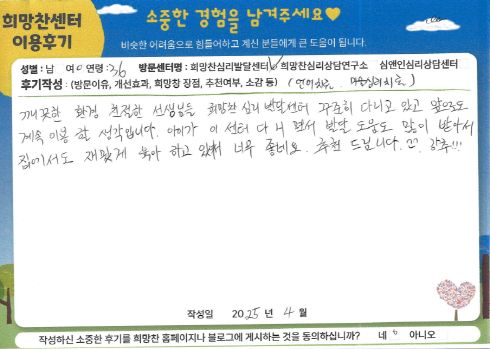 희망찬센터
이용후기
소중한 경험을 남겨주세요
비슷한 어려움으로 힘들어하고 계신 분들에게 큰 도움이 됩니다.
성별 : 남 여○ 연령 : 36 방문센터명 : 희망찬심리발달센터 희망찬심리상담연구소 심앤인심리상담센터
후기작성 : (방문이유, 개선효과, 희망찬 장점, 추천여부, 소감 등) (언어치료, 미술심리치료)
깨끗한 환경 친절한 선생님들 희망찬 심리 발달센터 꾸준히 다니고 있고 앞으로도
계속 이용 할 생각입니다. 아이가 이 센터 다니면서 발달 도움도 많이 받아서
집에서도 재밌게 육아 하고 있어서 너무 좋네요. 추천 드립니다. 강추!!!
작성일 2025년 4월
작성하신 소중한 후기를 희망찬 홈페이지나 블로그에 게시하는 것을 동의하십니까? 네 아니오